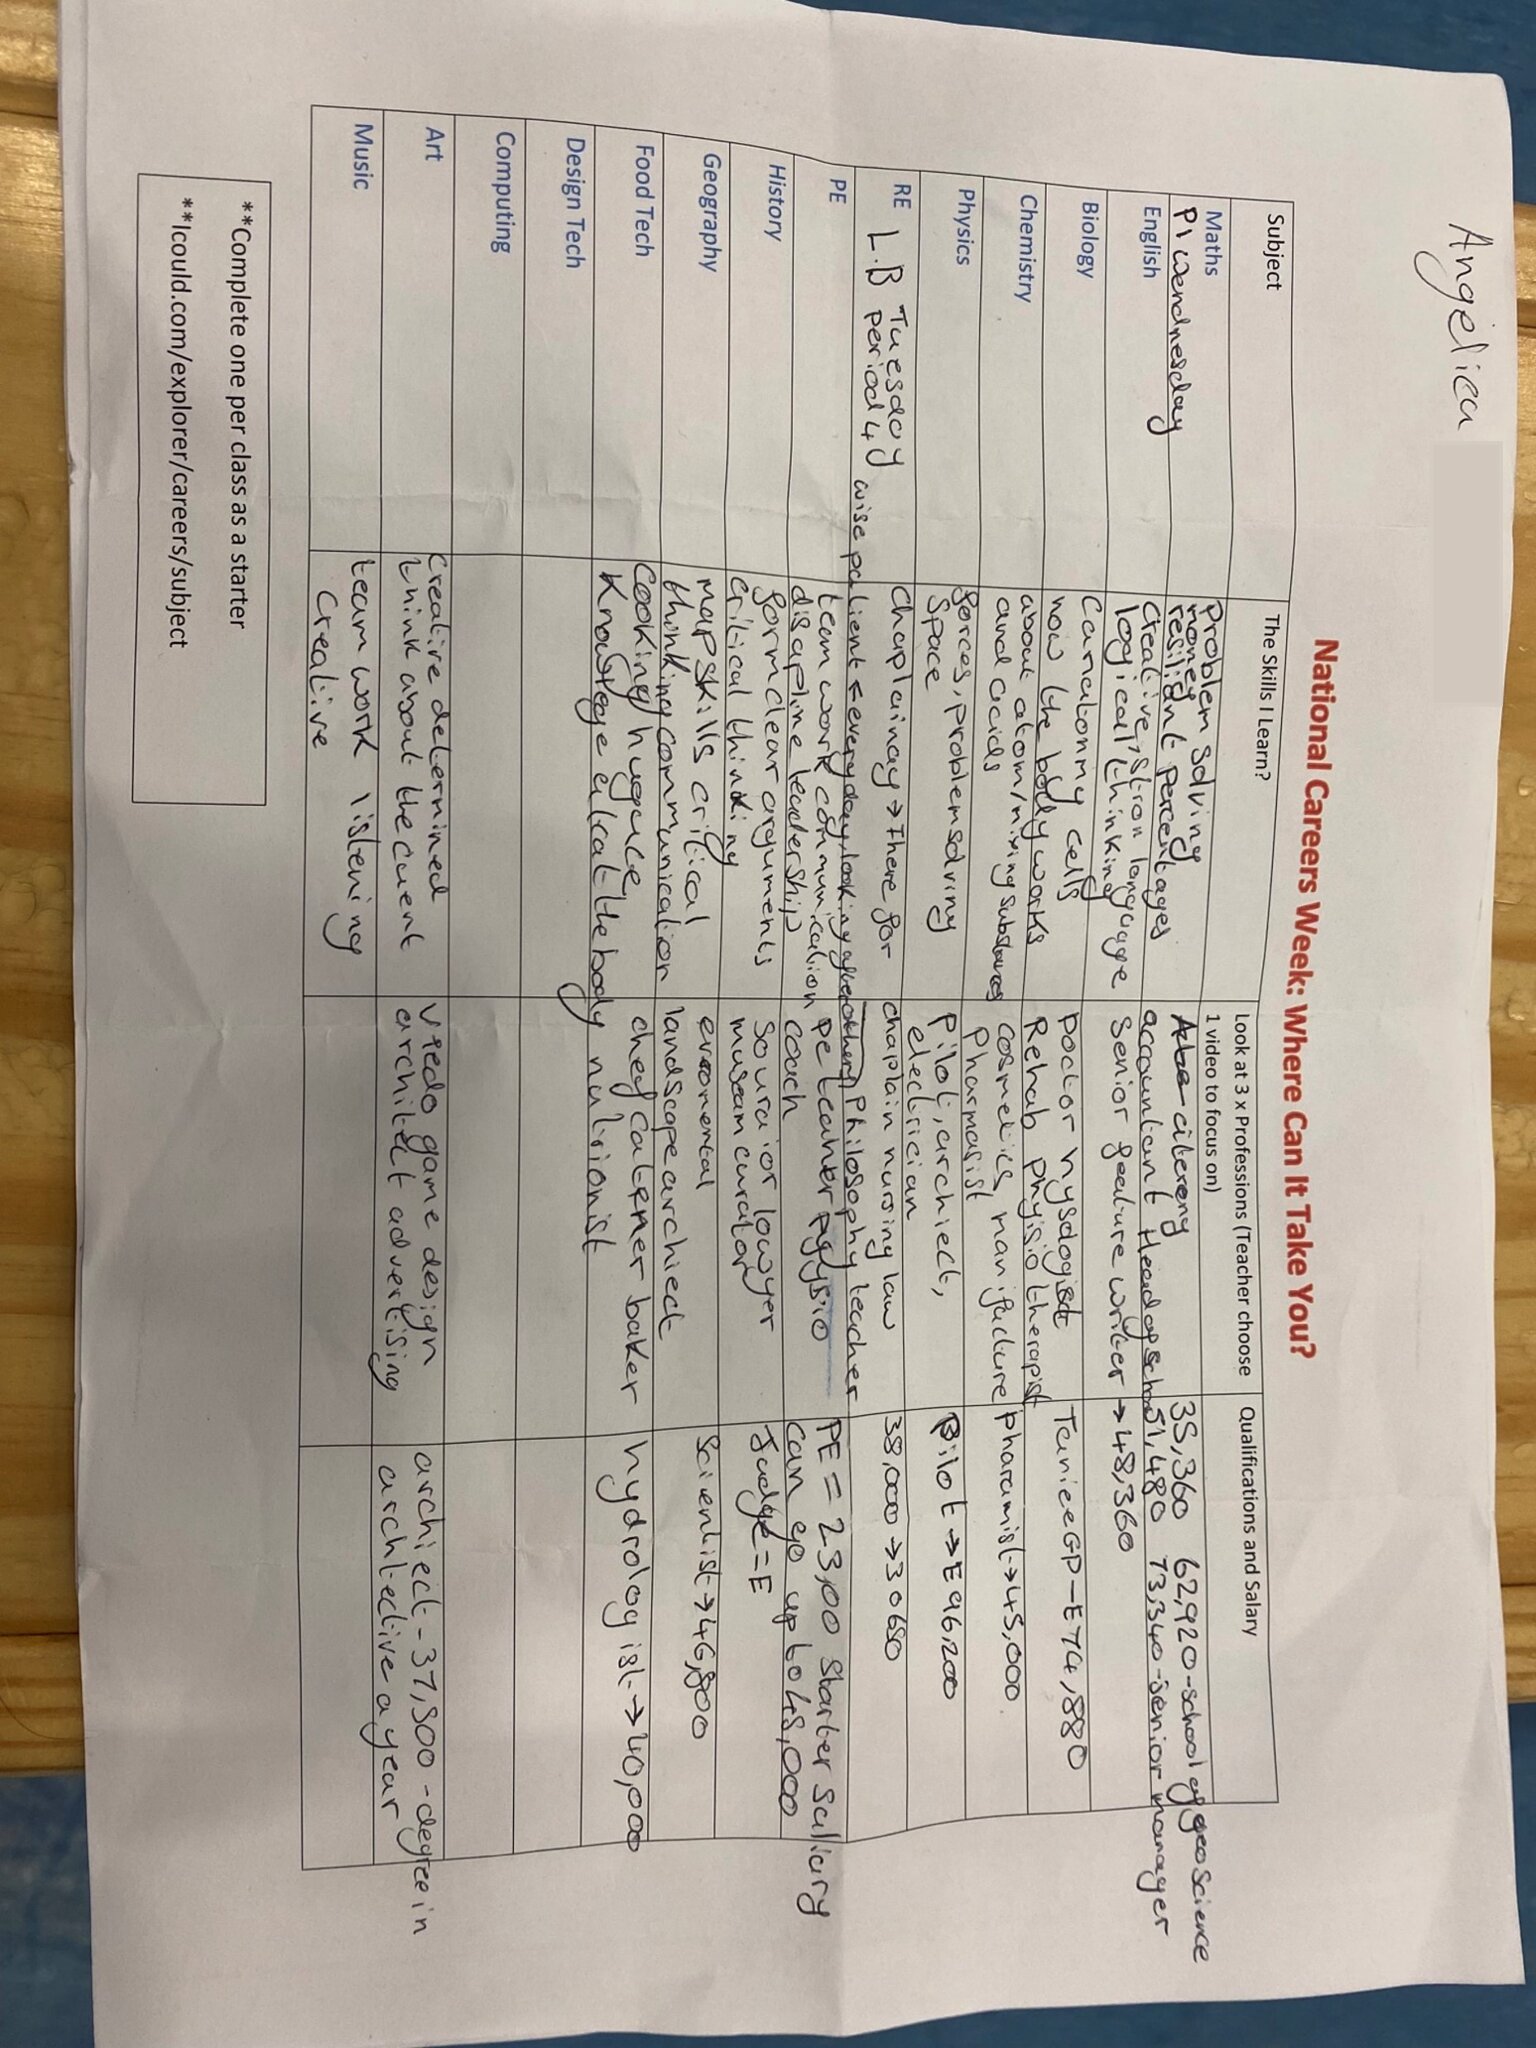 Angelica
National Careers Week: Where Can It Take You?
Subject
The Skills I Learn?
Look at 3 x Professions (Teacher choose
1 video to focus on)
Qualifications and Salary
Maths
P1 wendnesday
problem solving
money
resiliant percentages
citereny
accountant Head of school
35,360 62,920-school of geoscience
51,480 73,340-senior manager
English
creative, stron language
logical thinking
senior feature writer
→48,360
Biology
canatonmy cells
how the body works
Doctor hysologist
Rehab physio therapist
GP-£74,880
Chemistry
about atom/mixing substances
and acids
cosmetics manifacture
Pharmasist
pharamist→45,000
Physics
forces, problem solving
space
Pilot, archiect,
electrician
pilot →£96,200
RE
L.B Tuesday
period 4
chaplainay → There for
wise patient ← everyday, looking after others
chaplain nursing law
Philosophy teacher
38,000 →30680
PE
team work communication
disapline leadership
pe teacher pyysio
coach
PE = 23,00 starter saliary
can go up to 48,000
History
form clear arguments
critical thinking
lowyer
museam curator
Judge = £
Geography
map skills critical
thinking communication
evromental
landscape archiect
Scientist→46,800
Food Tech
cooking huguce
knowlege the body
chef caterner baker
nutrionist
hydrologist→40,000
Design Tech
Computing
Art
creative determined
think about the cuent
viedo game design
architect advertising
archiect - 37,500 - degree in
archtective a year
Music
team work listening
creative
**Complete one per class as a starter
**Icould.com/explorer/careers/subject